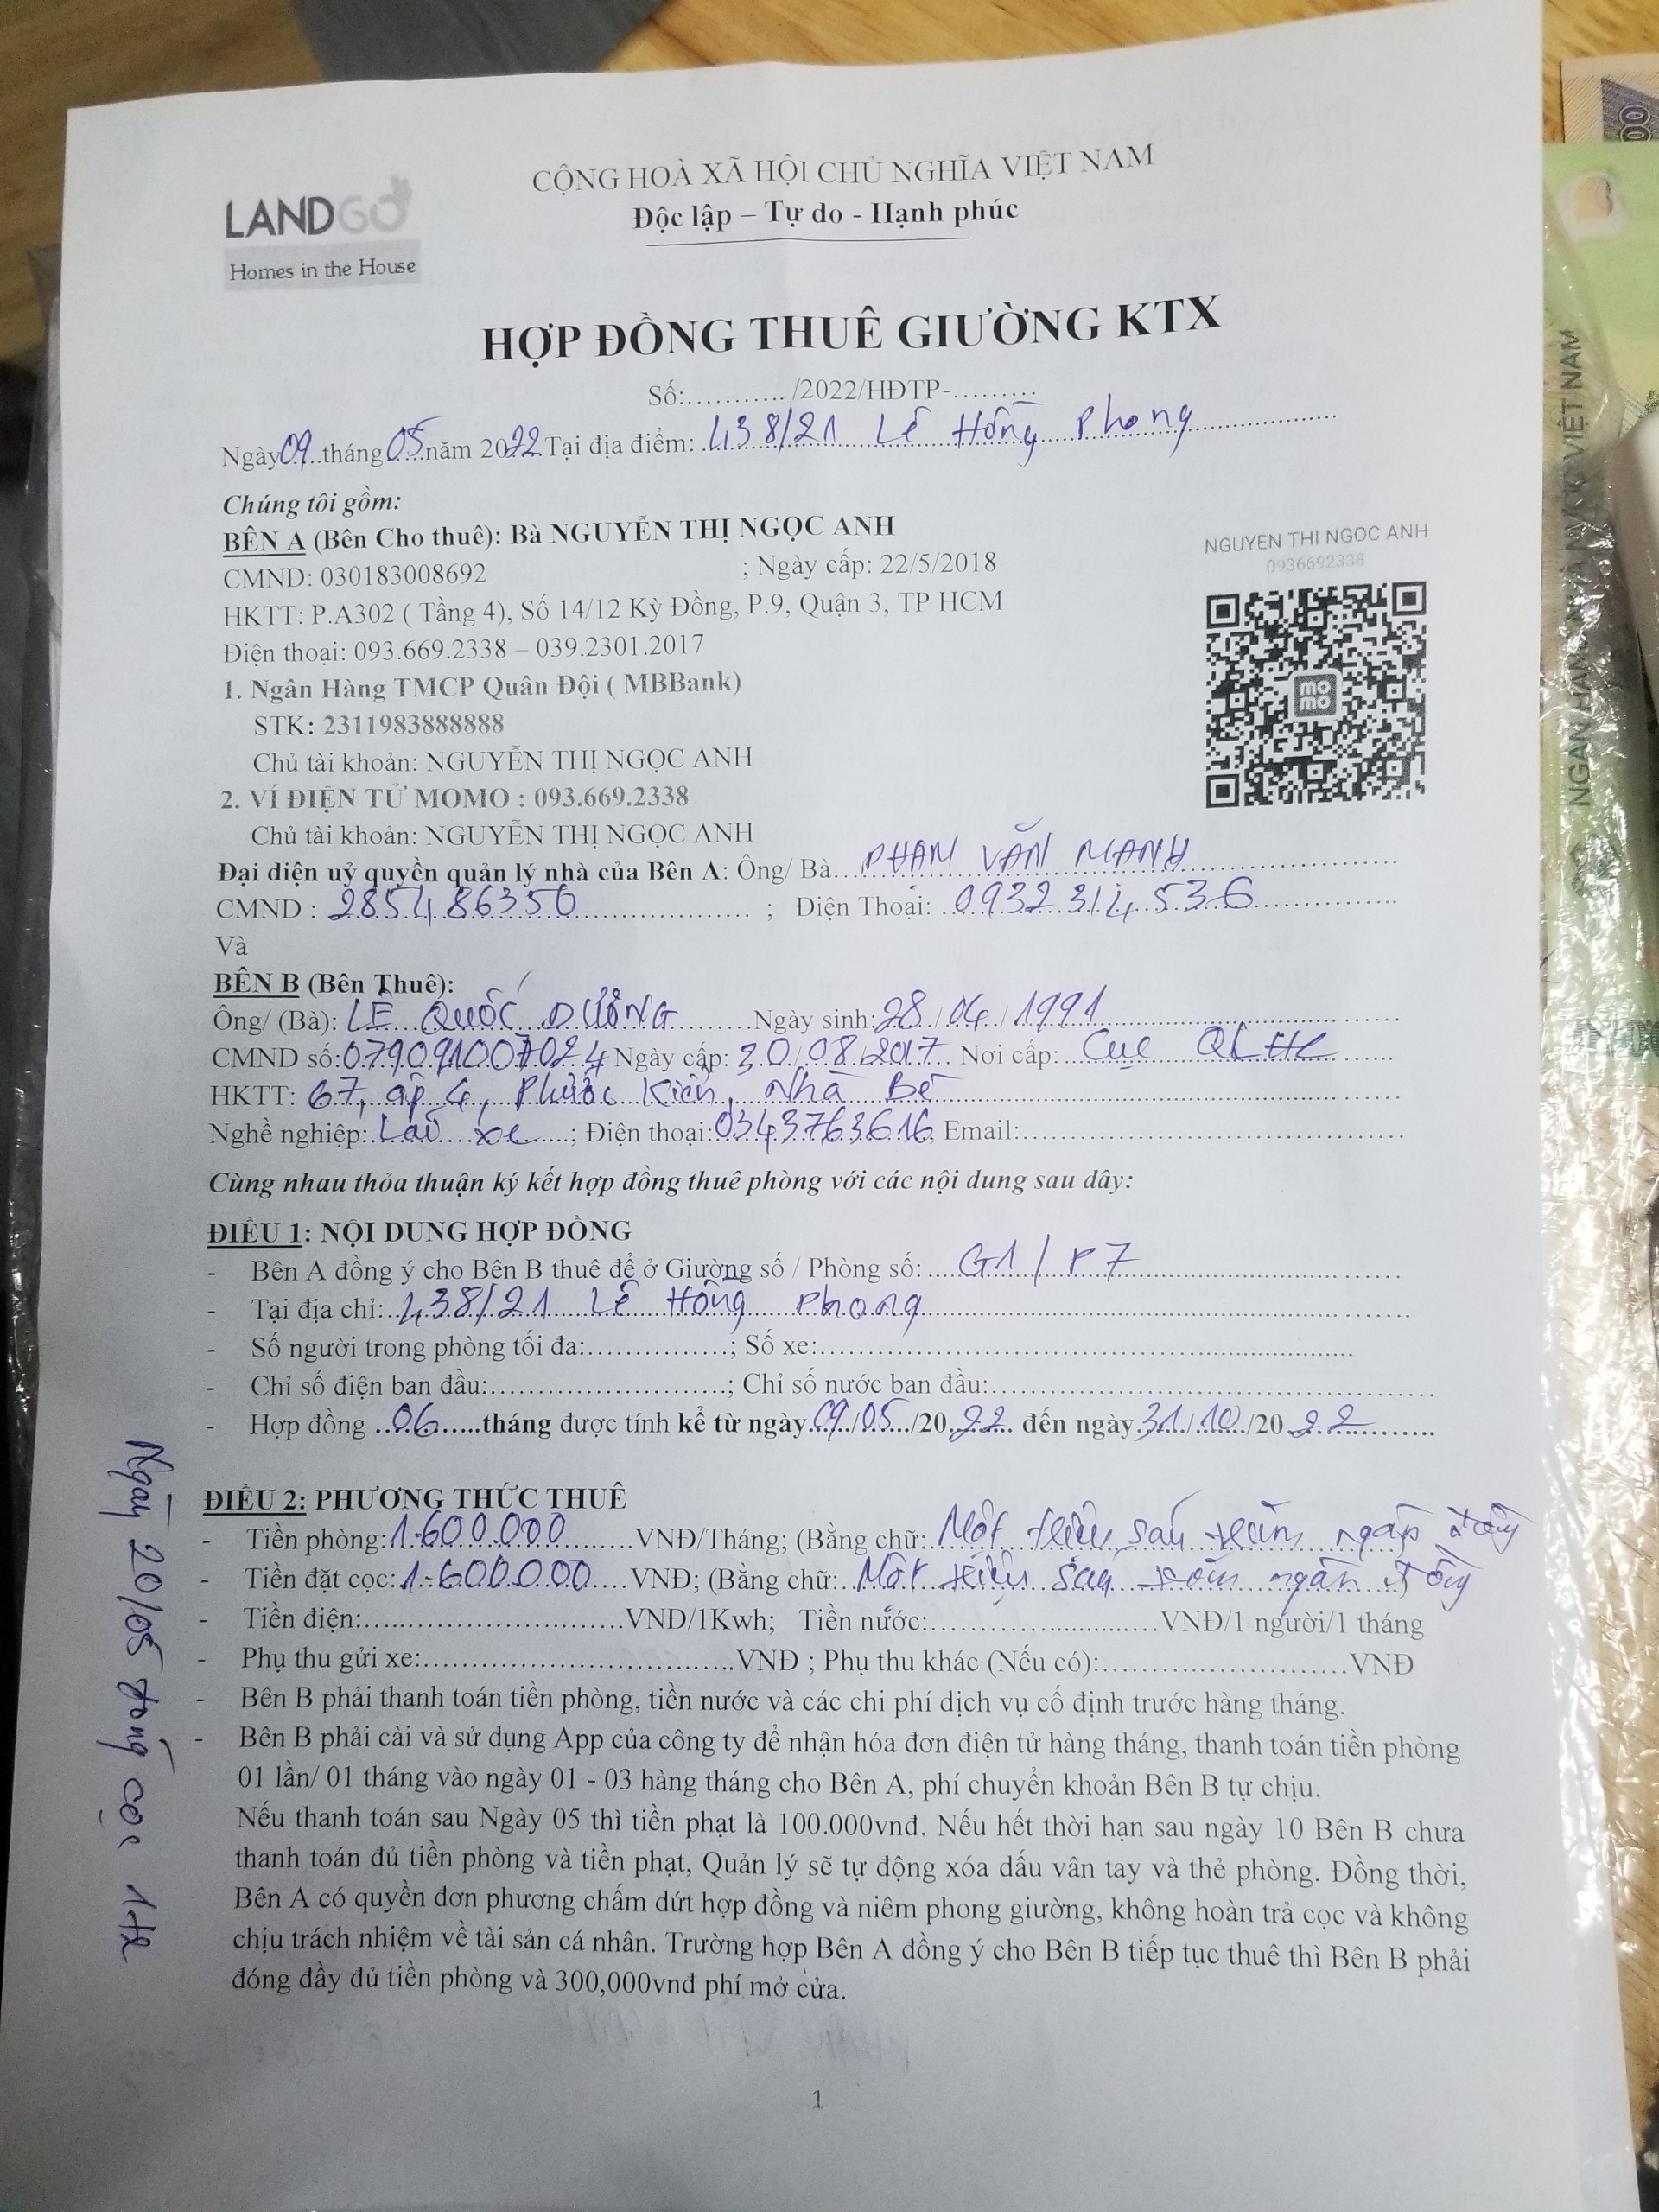 CỘNG HOÀ XÃ HỘI CHỦ NGHĨA VIỆT NAM
Độc lập – Tự do - Hạnh phúc
LANDGO
Homes in the House
HỢP ĐỒNG THUÊ GIƯỜNG KTX
Số:........... /2022/HĐTP-.........
Ngày 09 tháng 05 năm 2022 Tại địa điểm: 438/21 Lê Hồng Phong
Chúng tôi gồm:
BÊN A (Bên Cho thuê): Bà NGUYỄN THỊ NGỌC ANH
CMND: 030183008692 ; Ngày cấp: 22/5/2018
HKTT: P.A302 ( Tầng 4), Số 14/12 Kỳ Đồng, P.9, Quận 3, TP HCM
Điện thoại: 093.669.2338 – 039.2301.2017
1. Ngân Hàng TMCP Quân Đội ( MBBank)
STK: 2311983888888
Chủ tài khoản: NGUYỄN THỊ NGỌC ANH
2. VÍ ĐIỆN TỬ MOMO : 093.669.2338
Chủ tài khoản: NGUYỄN THỊ NGỌC ANH
NGUYEN THI NGOC ANH
0936692338
momo
Đại diện uỷ quyền quản lý nhà của Bên A: Ông/ Bà PHẠM VĂN MẠNH
CMND : 285486350 ; Điện Thoại: 0932 314 536
Và
BÊN B (Bên Thuê):
Ông/ (Bà): LÊ QUỐC DƯƠNG Ngày sinh: 28/04/1991
CMND số: 079091007024 Ngày cấp: 30/08/2017 Nơi cấp: Cục QLHC
HKTT: 67, ấp 4, Phước Kiển, Nhà Bè
Nghề nghiệp: Lái xe ; Điện thoại: 0343763616, Email:
Cùng nhau thỏa thuận ký kết hợp đồng thuê phòng với các nội dung sau đây:
ĐIỀU 1: NỘI DUNG HỢP ĐỒNG
- Bên A đồng ý cho Bên B thuê để ở Giường số / Phòng số: G1 / P7
- Tại địa chỉ: 438/21 Lê Hồng Phong
- Số người trong phòng tối đa:...............; Số xe:
- Chỉ số điện ban đầu:...............; Chỉ số nước ban đầu:
- Hợp đồng 06 tháng được tính kể từ ngày 09/05/2022 đến ngày 31/10/2022
ĐIỀU 2: PHƯƠNG THỨC THUÊ
- Tiền phòng: 1.600.000 VNĐ/Tháng; (Bằng chữ: Một triệu sáu trăm ngàn đồng
- Tiền đặt cọc: 1.600.000 VNĐ; (Bằng chữ: Một triệu sáu trăm ngàn đồng
- Tiền điện:...............VNĐ/1Kwh; Tiền nước:...............VNĐ/1 người/1 tháng
- Phụ thu gửi xe:...............VNĐ ; Phụ thu khác (Nếu có):...............VNĐ
- Bên B phải thanh toán tiền phòng, tiền nước và các chi phí dịch vụ cố định trước hàng tháng.
- Bên B phải cài và sử dụng App của công ty để nhận hóa đơn điện tử hàng tháng, thanh toán tiền phòng
01 lần/ 01 tháng vào ngày 01 - 03 hàng tháng cho Bên A, phí chuyển khoản Bên B tự chịu.
Nếu thanh toán sau Ngày 05 thì tiền phạt là 100.000vnđ. Nếu hết thời hạn sau ngày 10 Bên B chưa
thanh toán đủ tiền phòng và tiền phạt, Quản lý sẽ tự động xóa dấu vân tay và thẻ phòng. Đồng thời,
Bên A có quyền đơn phương chấm dứt hợp đồng và niêm phong giường, không hoàn trả cọc và không
chịu trách nhiệm về tài sản cá nhân. Trường hợp Bên A đồng ý cho Bên B tiếp tục thuê thì Bên B phải
đóng đầy đủ tiền phòng và 300,000vnđ phí mở cửa.
Ngày 20/05 đóng cọc
1
NGÂN HÀNG NHÀ NƯỚC VIỆT NAM